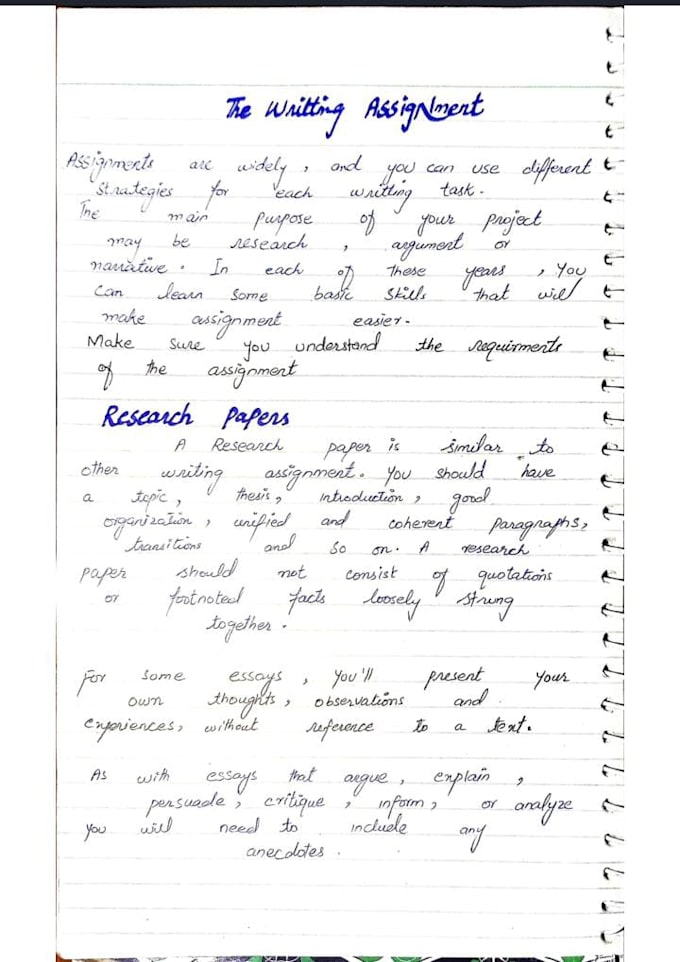 The Writting Assignment
Assignments are widely, and you can use different
strategies for each writting task.
The main purpose of your project
may be research, argument or
narrative. In each of these years, you
can learn some basic skills that will
make assignment easier.
Make sure you understand the requirments
of the assignment
Research Papers
A Research paper is similar to
other writing assignment. You should have
a topic, thesis, introduction, good
organization, unified and coherent paragraphs,
transitions and so on. A research
paper should not consist of quotations
or footnoted facts loosely strung
together.
For some essays, you'll present your
own thoughts, observations and
experiences, without reference to a text.
As with essays that argue, explain,
persuade, critique, inform, or analyze
you will need to include any
anecdotes.